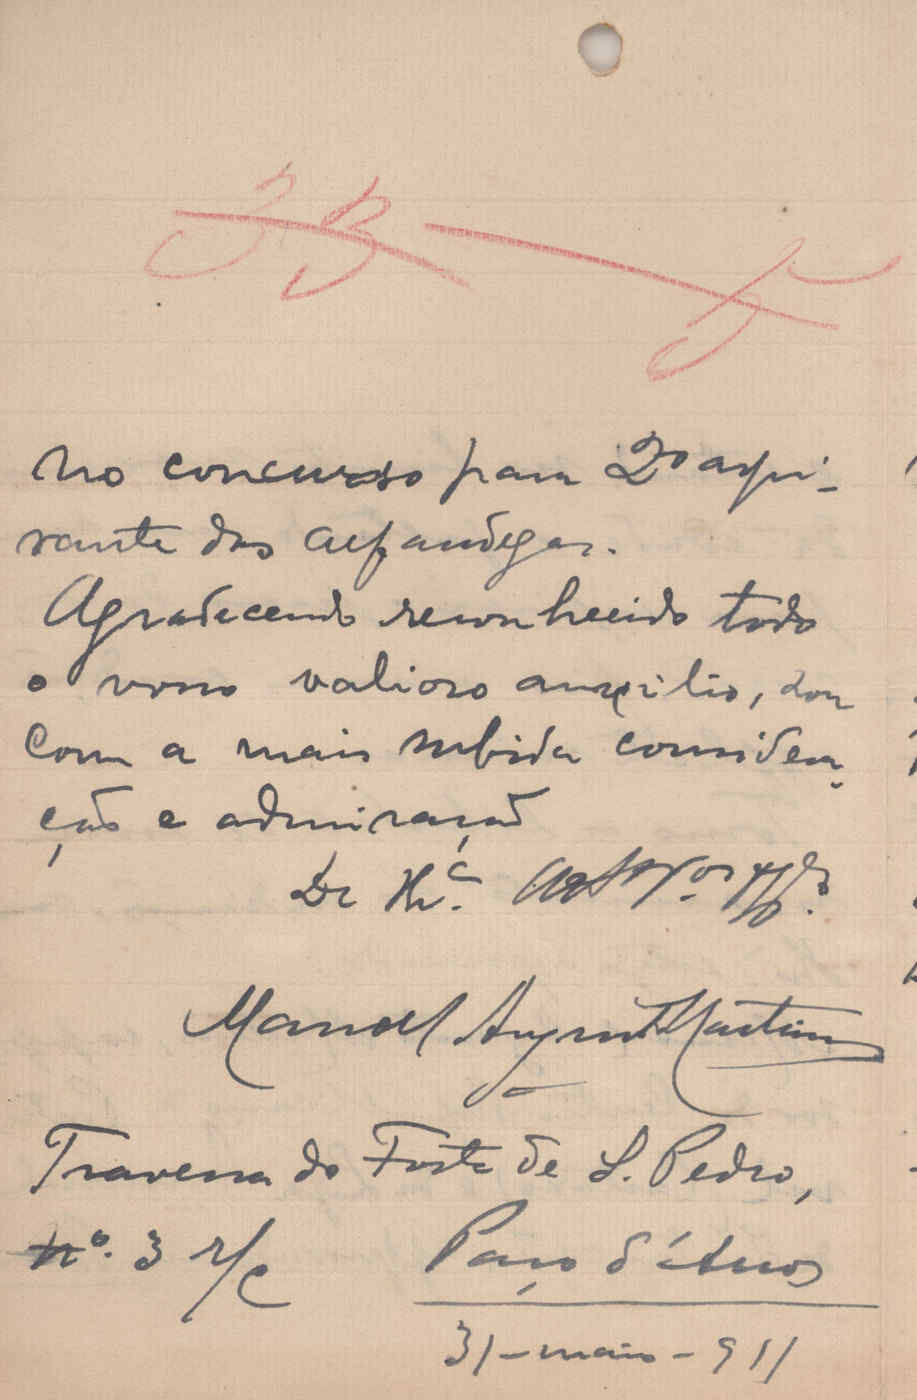 no concurso para 2º aspi-
rante das alfandegas.
Agradecendo reconhecido todo
o vosso valioso auxilio, sou
com a mais subida considera-
ção e admiração
De V. Exª
Manoel Martins
Travessa do Forte de S. Pedro,
nº. 3 r/c Paço d'Arcos
31-maio-911